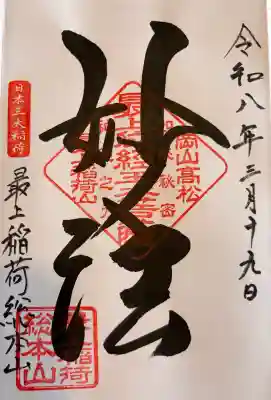 令和八年三月十九日
岡山高松
妙法
日本三大稲荷
最上稲荷総本山
最上稲荷
総本山